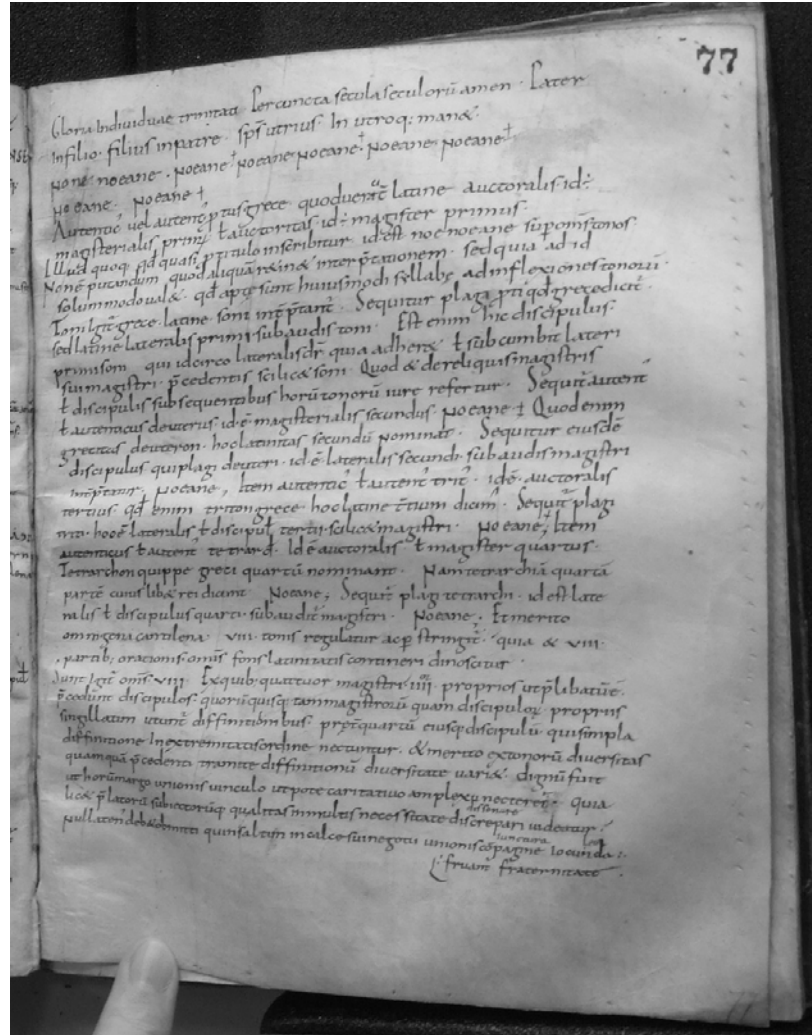 77
Gloria Individuae trinitati Per cuncta secula seculorū amen · Pater
Infilio · filius inpatre · sp̄s utrius · In utroq; man&·
None noeane · Noeane Noeane Noeane · Noeane · Noeane
Noeane · Noeane
Autentic᾽ vel autent᾽ p̄tus grece · quod latine auctoralis · id÷
magisterialis prim᾽ ł auctoritas · id÷ magister primus ·
Illud quoq; qđ quasi p titulo inscribitur id est noe noeane tonos ·
None putandum quod aliquā r&ine& interp̄tationem · sed quia ad id
solummodo ual& · qđ apte sunt huiusmodi syllabę ad inflexiones tonorū ·
Toni grece · latine soni · Sequitur plagi p̄ti qđ grece dicit᾽ ·
sed latine lateralis primi · subaudis toni · Est enim hic discipulus
primi soni qui idcirco lateralis dr̄ quia adher& ł subcumbit lateri
sui magistri · p̄cedentis scilic& soni · Quod & de reliquis magistris
ł discipulis subsequentibus horū tonorū iure refertur · Sequit᾽ autent᾽
ł autenticus deuterus · id ē magisterialis secundus · Noeane · Quod enim
grecitas deuteron · hoc latinitas secundū nominat · Sequitur eiusdē
discipulus qui plagi deuteri · id ē lateralis secundi · subaudis magistri
Noeane , Item autentic᾽ ł autent᾽ trit᾽ · id ē auctoralis
tertius · qđ enim triton grece · hoc latine tertium dicim᾽ · Sequit᾽ plagi
triti · hoc ē lateralis ł discipul᾽ tertii · scilic& magistri · Noeane ; Item
autenticus ł autent᾽ tetrard᾽ · Id ē auctoralis ł magister quartus ·
Tetrarchon quippe greci quartū nominant · Nam tetrarchiā quartā
partē cuius lib& rei dicunt Noeane ; Sequit᾽ plagi tetrarchi · id est late
ralis ł discipulus quarti · subaudit᾽ magistri · Noeane · Et merito
omnigena cantilena VIII · tonis regulatur ac pstringit᾽ · quia & VIII ·
partib; orationis omnis fons latinitatis contineri dinoscitur ·
Sunt igit᾽ om̄s VIII Ex quib; quattuor magistri · IIII · proprios ut plibatū ē ·
p̄cedunt discipulos · quorū quisq; tam magistrorū quam discipulor᾽ propriis
singillatim utunt᾽ diffinitionibus · pręt᾽ quartū eiusq; discipulū qui simpla
diffinitione In extremitatis ordine nectuntur · & merito ex tonorū diversitas
quamquā p̄cedenti tramite diffinitionū diversitate vari& · dignū fuit
ut horū margo unionis vinculo utpote caritativo amplexu necteret᾽ · quia
lic& p̄latorū subiectorūq; qualitas in multis necessitate discrepari videatur ·
dissonare
nullaten᾽ deb& dimitti quin saltim in calce sui negotii unionis cōpagine iocunda ·
iunctura
fruant᾽ fraternitate ·